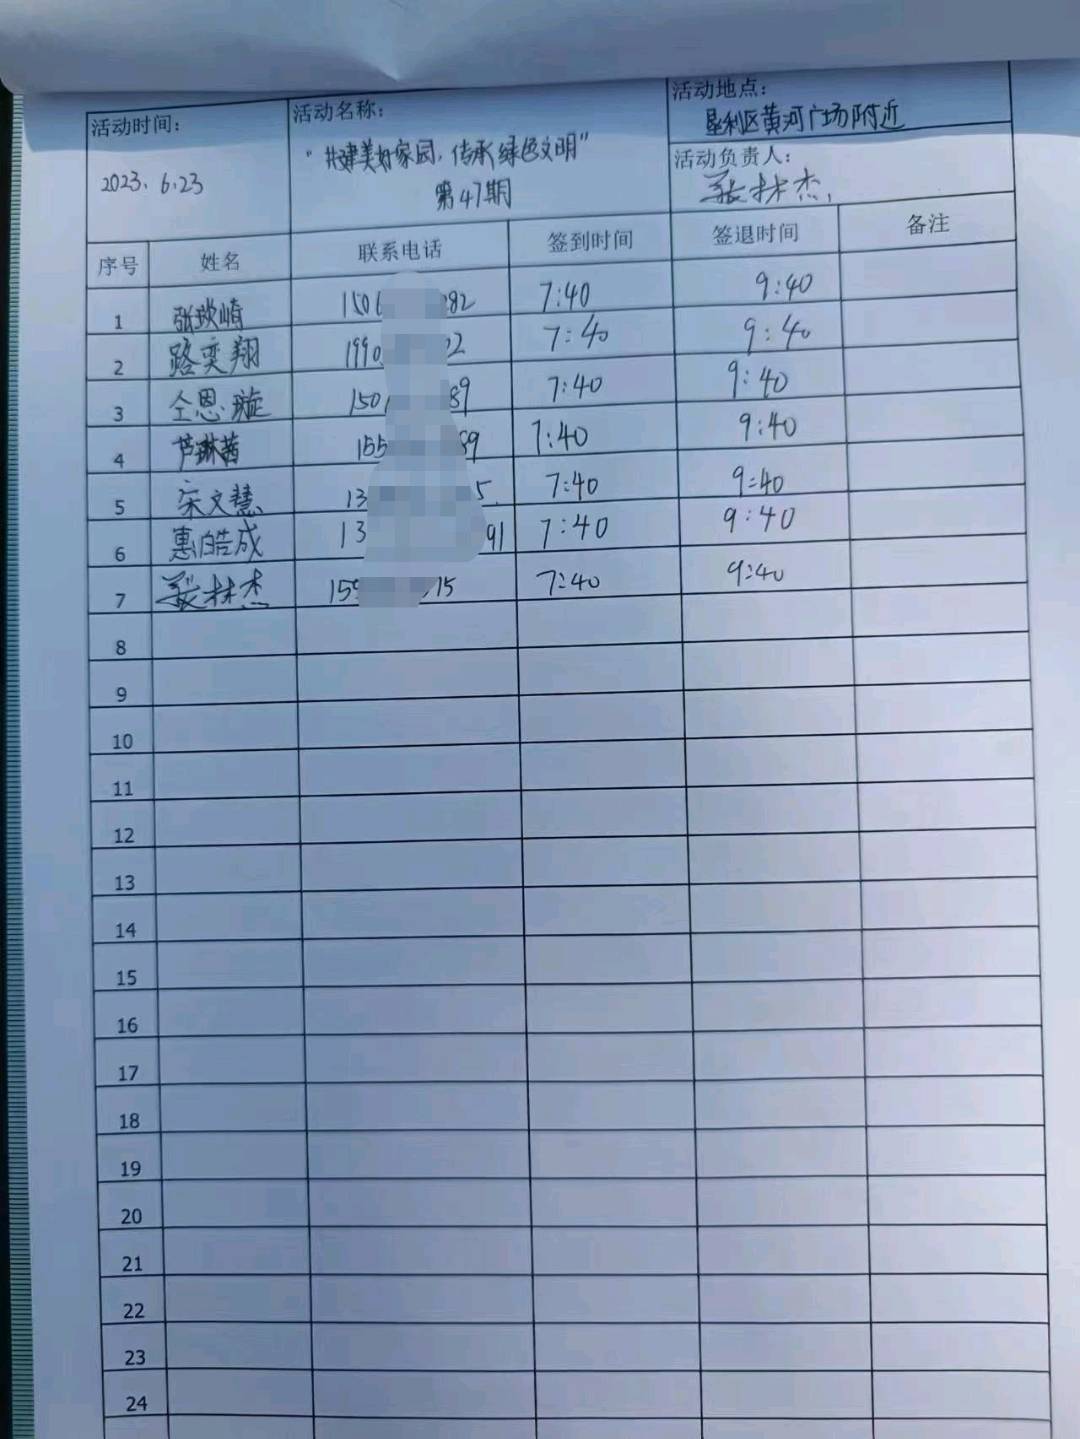 活动时间：
2023.6.23
活动名称：
“共建美好家园，传承绿色文明”
第47期
活动地点：
垦利区黄河广场附近
活动负责人：
张林杰
序号 姓名 联系电话 签到时间 签退时间 备注
1 张琰崎 150 082 7:40 9:40
2 路奕翔 1990 02 7:40 9:40
3 仝恩璇 150 89 7:40 9:40
4 芦琳茜 155 89 7:40 9:40
5 宋文慧 13 5 7:40 9:40
6 惠皓成 13 91 7:40 9:40
7 张林杰 159 15 7:40 9:40
8
9
10
11
12
13
14
15
16
17
18
19
20
21
22
23
24